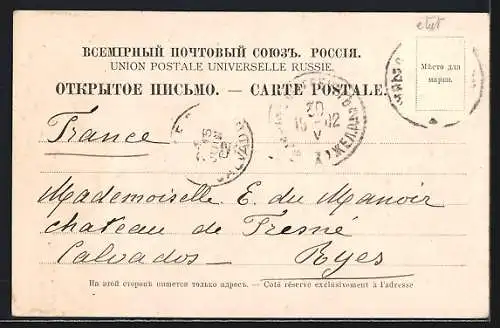 etut
ВСЕМІРНЫЙ ПОЧТОВЫЙ СОЮЗЪ. РОССІЯ.
UNION POSTALE UNIVERSELLE RUSSIE.
Мѣсто для
марки.
ОТКРЫТОЕ ПИСЬМО. — CARTE POSTALE.
France
30
V
CALVADOS
Mademoiselle E. du Manoir
chateau de Fresné
Calvados — Ryes
На этой сторонѣ пишется только адресъ. — Coté réservé exclusivement à l'adresse